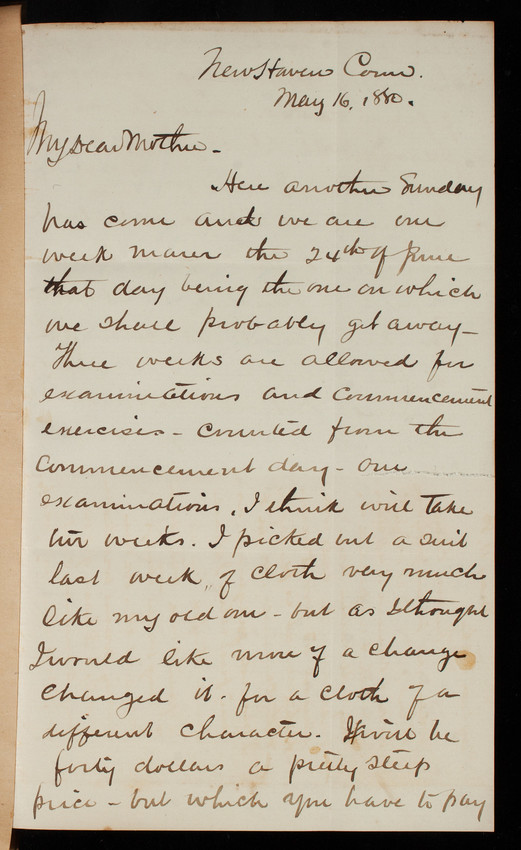 New Haven Conn.
May 16, 1880.
My Dear Mother -
Here another Sunday
has come and we are one
week nearer the 24th of June
that day being the one on which
we shall probably get away -
Three weeks are allowed for
examinations and commencement
exercises - counted from the
commencement day - our
examinations, I think will take
two weeks. I picked out a suit
last week, of cloth very much
like my old one - but as I thought
I would like more of a change
changed it - for a cloth of a
different character. It will be
forty dollars a pretty steep
price - but which you have to pay